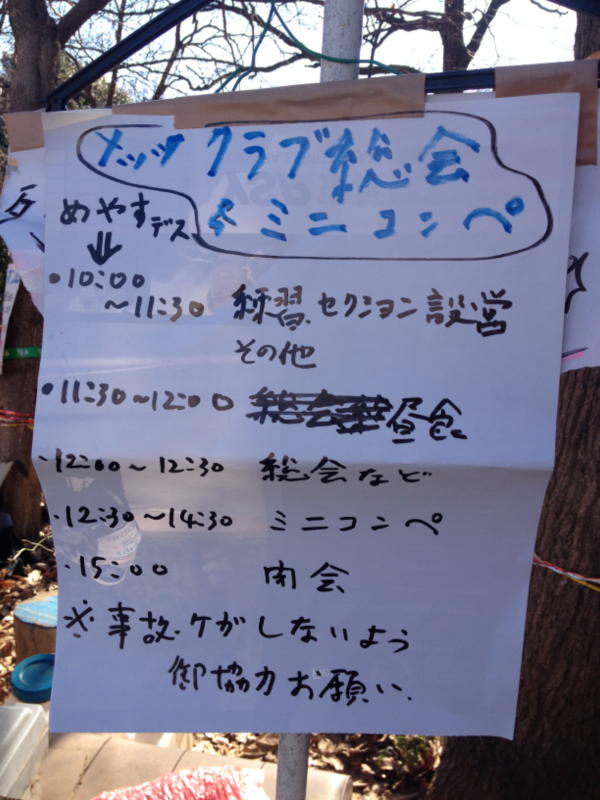 メッツ クラブ総会
& ミニコンペ
めやすデス
⇓
・10:00
～11:30 練習セクション設営
その他
・11:30～12:00 昼食
・12:00～12:30 総会など
・12:30～14:30 ミニコンペ
・15:00 閉会
※事故・ケガしないよう
御協力お願い.